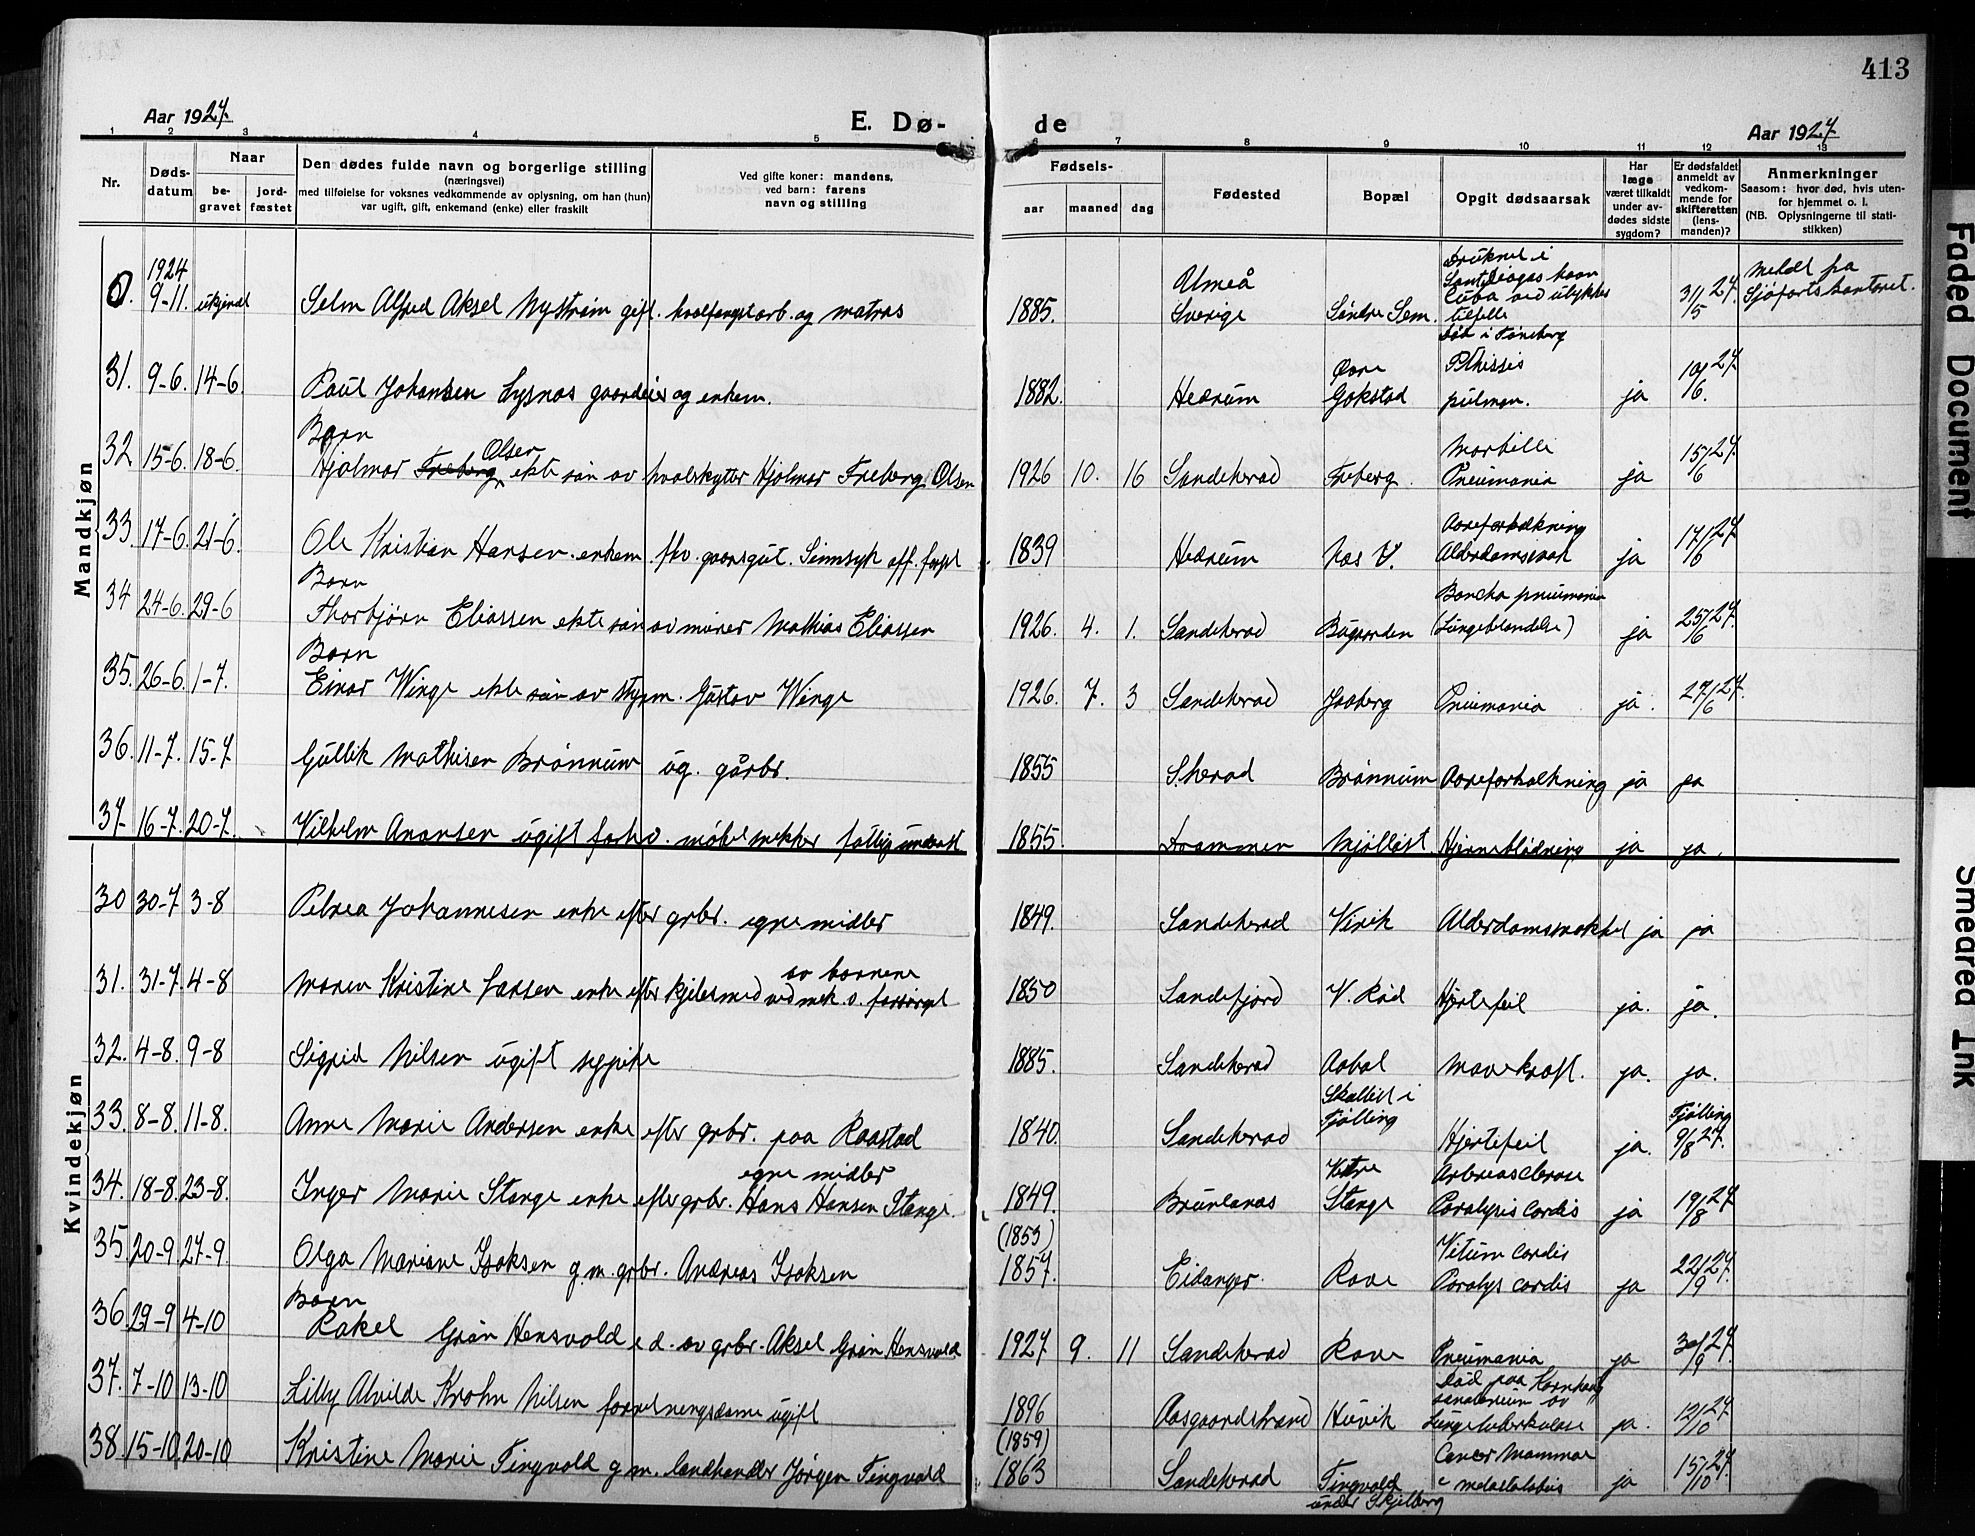 413
Aar 1927.
E. Dø-
de
Aar 1927
1 2 3 4 5 6 7 8 9 10 11 12 13
Nr.
Døds-
datum
Naar
be-
gravet
jord-
fæstet
Den dødes fulde navn og borgerlige stilling
(næringsvei)
med tilføielse for voksnes vedkommende av oplysning, om han (hun)
var ugift, gift, enkemand (enke) eller fraskilt
Ved gifte koner: mandens,
ved barn: farens
navn og stilling
Fødsels-
aar maaned dag
Fødested
Bopæl
Opgit dødsaarsak
Har
læge
været tilkaldt
under av-
dødes sidste
sygdom?
Er dødsfaldet
anmeldt av
vedkom-
mende for
skifteretten
(lens-
manden)?
Anmerkninger
Saasom: hvor død, hvis uten-
for hjemmet o. l.
(NB. Oplysningerne til stati-
stikken)
Mandkjøn
0. 1924 9-11. ukjendt Selm Alfred Aksel Nystrøm gift. hvalfangstarb. og matros 1885. Umeå Sverige Søndre Sem. Druknet i Santiagos havn Cuba ved ulykkes tilfelle Død i Tønsberg 31/5 27. Meldt fra Sjøfartskontoret.
31. 9-6. 14-6. Paul Johansen Lysnas gaardeier og enkem. 1882. Hedrum Øvre Gokstad Pthissis pulmon. ja 10/6 27.
32 15-6. 18-6. Barn Hjalmar Freberg Olsen, ekte søn av hvalskytter Hjalmar Freberg Olsen 1926 10. 16 Sandeherad Freberg. Morbilli Pneumonia ja 15/6 27.
33. 17-6. 21-6. Ole Kristian Hansen. enkem. fhv. gaardgut. Sinnsyk off. forpl 1839 Hedrum Nas V. Aareforkalkning Alderdomssvak ja 17/6 27.
34 24-6. 29-6 Barn Thorbjørn Eliassen ekte søn av murer Mathias Eliassen 1926. 4. 1. Sandeherad Bugaarden Broncho pneumonia (Lungebetændelse) ja 25/6 27.
35. 26-6. 1-7. Barn Einar Winge ekte søn av styrm. Gustav Winge 1926. 7. 3 Sandeherad Jaaberg Pneumonia ja. 27/6 27.
36. 11-7. 15-7 Gullik Mathisen Brønnum ug. gårbr. 1855 S.herad Brønnum Aareforkalkning ja ja
37. 16-7. 20-7. Vilhelm Amonsen ugift forhv. møbelsnekker fattigunderst 1855. Drammen Mjølløst. Hjerneblødning ja ja.
Kvindekjøn
30 30-7 3-8 Petrea Johannesen enke efter grbr. egne midler 1849. Sandeherad Virik Alderdomssvakhet ja ja
31. 31-7 4-8 Maren Kristine Larsen enke efter kjelesmed ved mek. v. forsørget av barnene 1850 Sandefjord V. Rød Hjertefeil ja. ja.
32. 4-8. 9-8 Sigrid Nilsen ugift sypike 1885. Sandeherad Aabol Mavekræft. ja. ja.
33. 8-8. 11-8. Anne Marie Andersen enke efter grbr. paa Raastad 1840. Sandeherad Skallist i Tjølling Hjertefeil ja. Tjølling 9/8 27.
34. 18-8. 23-8. Inger Marie Stange enke efter grbr. Hans Hansen Stange. egne midler 1849. Brunlanas Vestre Stange Arteriosclerose Paralysis cordis ja 19/8 27.
35 20-9 27-9. Olga Mariane Isaksen g.m. grbr. Andreas Isaksen (1853) 1857. Eidanger. Rave Vitium cordis Paralys cordis ja 22/9 27.
36. 29-9 4-10 Barn Rakel Grøn Hensvold e d. av grbr. Aksel Grøn Hensvold. 1927 9. 11 Sandeherad Rave Pneumonia ja 30/9 27.
37. 7-10 13-10 Lilly Alvilde Krohn Nilsen forretningsdame ugift 1896 Aasgaardstrand Huvik Død paa Kornhaug sanatorium av Lungetuberkulose ja. 12/10 27.
38. 15-10 20-10 Kristine Marie Tingvold g m. landhandler Jørgen Tingvold (1859) 1863 Sandeherad Tingvold under Skjelberg Cancer Mammae c metastasis ja 15/10 27.
Faded Document
Smeared Ink